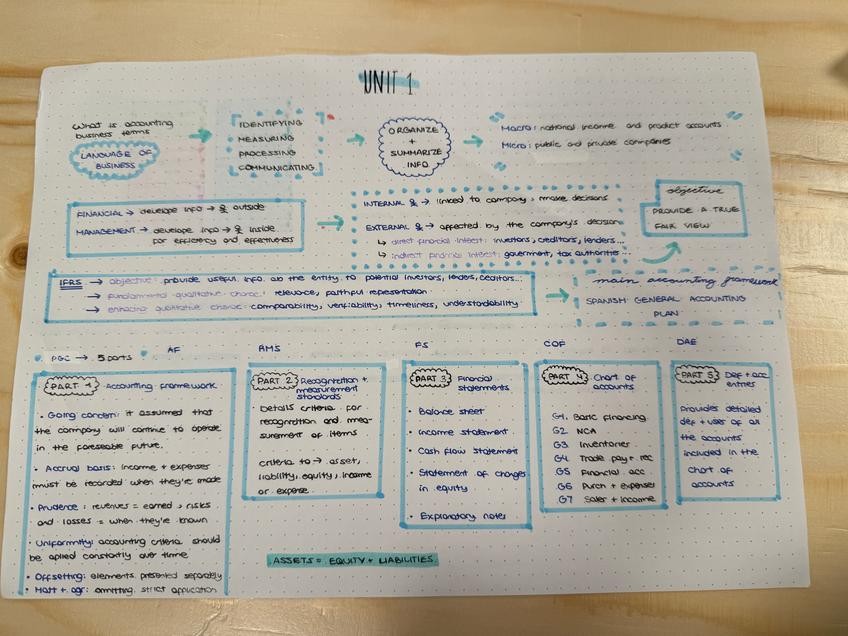 UNIT 1
What is accounting
business terms
LANGUAGE OF
BUSINESS
IDENTIFYING
MEASURING
PROCESSING
COMMUNICATING
ORGANIZE
+
SUMMARIZE
INFO
Macro: national income and product accounts
Micro: public and private companies
FINANCIAL → develope info → & outside
MANAGEMENT → develop info → & inside
for efficiency and effectiveness
INTERNAL & → linked to company, make decisions
EXTERNAL & → affected by the company's decision
↳ direct financial interest: investors, creditors, lenders...
↳ indirect financial interest: goverment, tax authorities...
objective
PROVIDE A TRUE
FAIR VIEW
IFRS → objective: provide useful info. ab the entity to potential investors, lenders, creditors...
→ fundamental qualitative charac: relevance, faithful representation
→ enhacing qualitative charac: comparability, verifiability, timeliness, understandability
main accounting framework
SPANISH GENERAL ACCOUNTING
PLAN
PGC → 5 parts
AF
RMS
FS
COF
DAE
PART 1 Accounting framework
• Going concern: it assumed that
the company will continue to operate
in the foreseable future.
• Accrual basis: income + expenses
must be recorded when they're made
• Prudence: revenues = earned, risks
and losses = when they're known
• Uniformity: accounting criteria should
be aplied constantly over time
• Offsetting: elements presented separately
• Mat + agr: omitting strict application
PART 2 Recognition +
measurement
standards
• Details criteria for
recognition and mea-
surement of items
criteria to → asset,
liability, equity, income
or expense.
PART 3 Financial
statements
• Balance sheet
• Income statement
• Cash flow statement
• Statement of changes
in equity
• Explanatory notes
PART 4 Chart of
accounts
G1. Basic financing
G2 NCA
G3 Inventories
G4 Trade pay + rec
G5 Financial acc
G6 Purch + expenses
G7 Sales + income
PART 5 Def + acc
entries
Provides detailed
def + use of all
the accounts
included in the
chart of
accounts
ASSETS = EQUITY + LIABILITIES